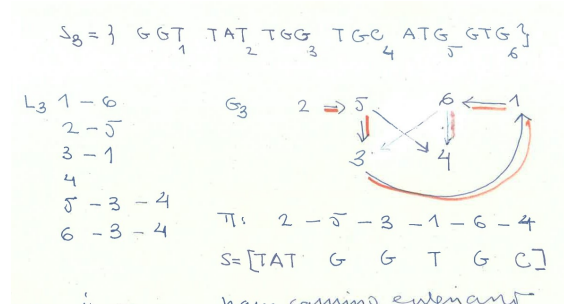 S3 = { GGT1 TAT2 TGG3 TGC4 ATG5 GTG6 }
L3 1 - 6
2 - 5
3 - 1
4
5 - 3 - 4
6 - 3 - 4
G3 2 5 6 1
3 4
π: 2 - 5 - 3 - 1 - 6 - 4
S = [TAT G G T G C]